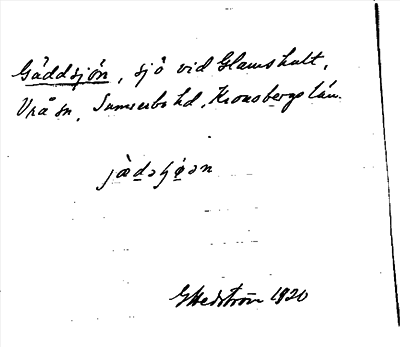 Gäddsjön, sjö vid Glamshult,
Vrå sn, Sunnerbo hd, Kronobergs län.
jæ̀dəʃø̀ən
GHedström 1920